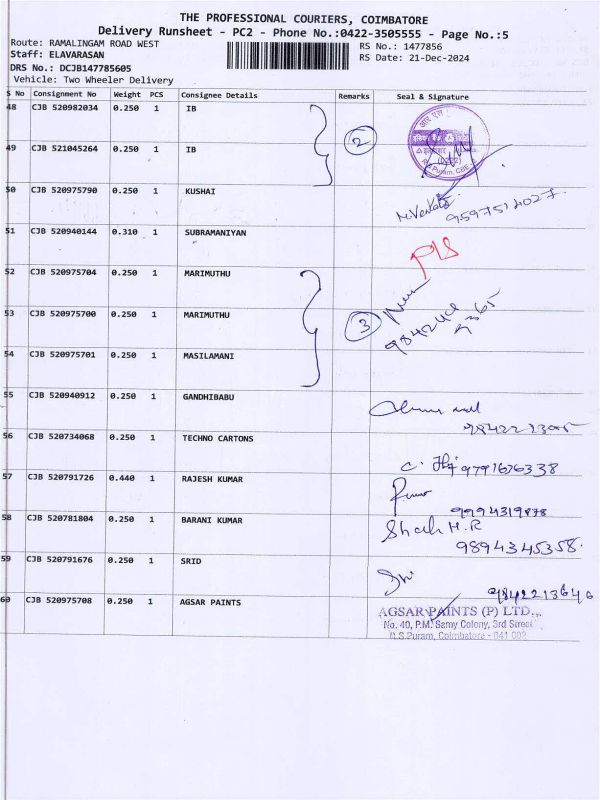 THE PROFESSIONAL COURIERS, COIMBATORE
Delivery Runsheet - PC2 - Phone No.:0422-3505555 - Page No.:5
Route: RAMALINGAM ROAD WEST RS No.: 1477856
Staff: ELAVARASAN RS Date: 21-Dec-2024
DRS No.: DCJB147785605
Vehicle: Two Wheeler Delivery
S No Consignment No Weight PCS Consignee Details Remarks Seal & Signature
48 CJB 520982034 0.250 1 IB
2
49 CJB 521045264 0.250 1 IB
R.S Puram, CBE
50 CJB 520975790 0.250 1 KUSHAI
51 CJB 520940144 0.310 1 SUBRAMANIYAN
52 CJB 520975704 0.250 1 MARIMUTHU
53 CJB 520975700 0.250 1 MARIMUTHU
3
54 CJB 520975701 0.250 1 MASILAMANI
55 CJB 520940912 0.250 1 GANDHIBABU
56 CJB 520734068 0.250 1 TECHNO CARTONS
9791676338
57 CJB 520791726 0.440 1 RAJESH KUMAR
9994319878
58 CJB 520781804 0.250 1 BARANI KUMAR
9894345358.
59 CJB 520791676 0.250 1 SRID
9842213646
60 CJB 520975708 0.250 1 AGSAR PAINTS
AGSAR PAINTS (P) LTD.,
No. 40, P.M. Samy Colony, 3rd Street
R.S.Puram, Coimbatore - 641 002